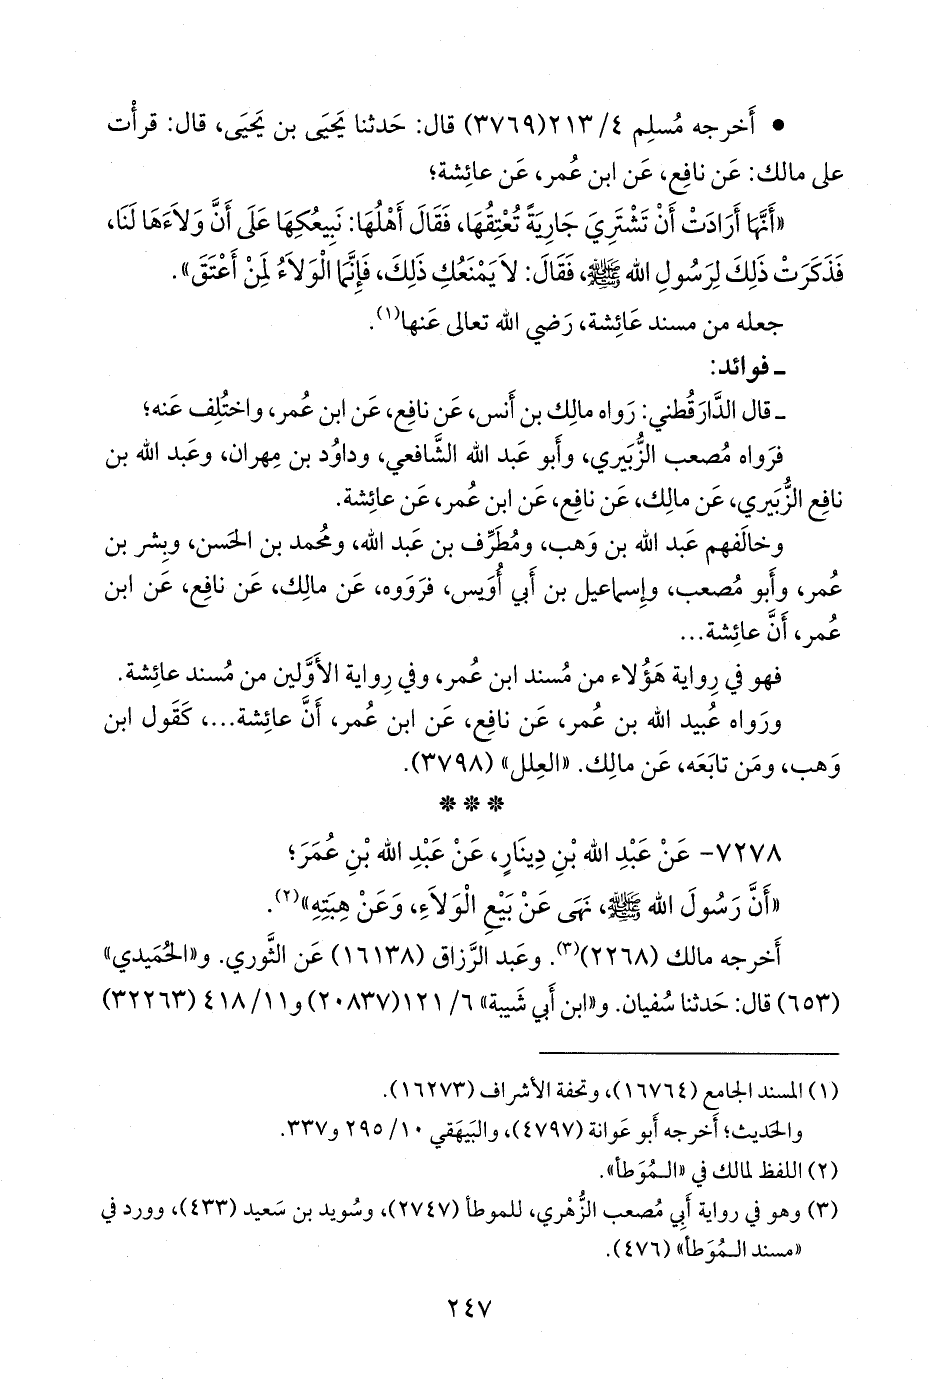 • أَخرجه مُسلِم ٤/ ٢١٣(٣٧٦٩) قال: حَدثنا يَحيَى بن يَحيَى، قال: قرأْت
على مالك: عَن نافِع، عَن ابن عُمر، عَن عائِشة؛
«أَنَّهَا أَرَادَتْ أَنْ تَشْتَرِيَ جَارِيَةً تُعْتِقُهَا، فَقَالَ أَهْلُهَا: نَبِيعُكِهَا عَلَى أَنَّ وَلاَءَهَا لَنَا،
فَذَكَرَتْ ذَلِكَ لِرَسُولِ الله ﷺ، فَقَالَ: لاَ يَمْنَعُكِ ذَلِكَ، فَإِنَّمَا الْوَلاَءُ لِمَنْ أَعْتَقَ».
جعله من مسند عَائِشة، رَضي الله تعالى عَنها(١).
ـ فوائد:
ـ قال الدَّارَقُطني: رَواه مالِك بن أَنس، عَن نافِع، عَن ابن عُمر، واختُلِف عَنه؛
فرَواه مُصعب الزُّبَيري، وأَبو عَبد الله الشَّافعي، وداوُد بن مِهران، وعَبد الله بن
نافِع الزُّبَيري، عَن مالِك، عَن نافِع، عَن ابن عُمر، عَن عائِشة.
وخالَفهم عَبد الله بن وَهب، ومُطَرِّف بن عَبد الله، ومُحمد بن الحَسن، وبِشر بن
عُمر، وأَبو مُصعب، وإِسماعيل بن أَبي أُوَيس، فرَوَوه، عَن مالِك، عَن نافِع، عَن ابن
عُمر، أَنَّ عائِشة...
فهو في رِواية هَؤُلاء من مُسند ابن عُمر، وفي رِواية الأَوَّلين من مُسند عائِشة.
ورَواه عُبيد الله بن عُمر، عَن نافِع، عَن ابن عُمر، أَنَّ عائِشة...، كَقَول ابن
وَهب، ومَن تابَعَه، عَن مالِك. «العِلل» (٣٧٩٨).
* * *
٧٢٧٨- عَنْ عَبْدِ الله بْنِ دِينَارٍ، عَنْ عَبْدِ الله بْنِ عُمَرَ؛
«أَنَّ رَسُولَ الله ﷺ، نَهَى عَنْ بَيْعِ الْوَلاَءِ، وَعَنْ هِبَتِهِ»(٢).
أَخرجه مالك (٢٢٦٨)(٣). وعَبد الرَّزاق (١٦١٣٨) عَن الثَّوري. و«الحُمَيدي»
(٦٥٣) قال: حَدثنا سُفيان. و«ابن أَبي شَيبة» ٦/ ١٢١(٢٠٨٣٧) و١١/ ٤١٨ (٣٢٢٦٣)
(١) المسند الجامع (١٦٧٦٤)، وتحفة الأَشراف (١٦٢٧٣).
والحَديث؛ أَخرجه أَبو عَوانة (٤٧٩٧)، والبَيهَقي ١٠/ ٢٩٥ و٣٣٧.
(٢) اللفظ لمالك في «المُوَطأ».
(٣) وهو في رواية أَبي مُصعب الزُّهْري، للموطأ (٢٧٤٧)، وسُويد بن سَعيد (٤٣٣)، وورد في
«مسند المُوَطأ» (٤٧٦).
٢٤٧